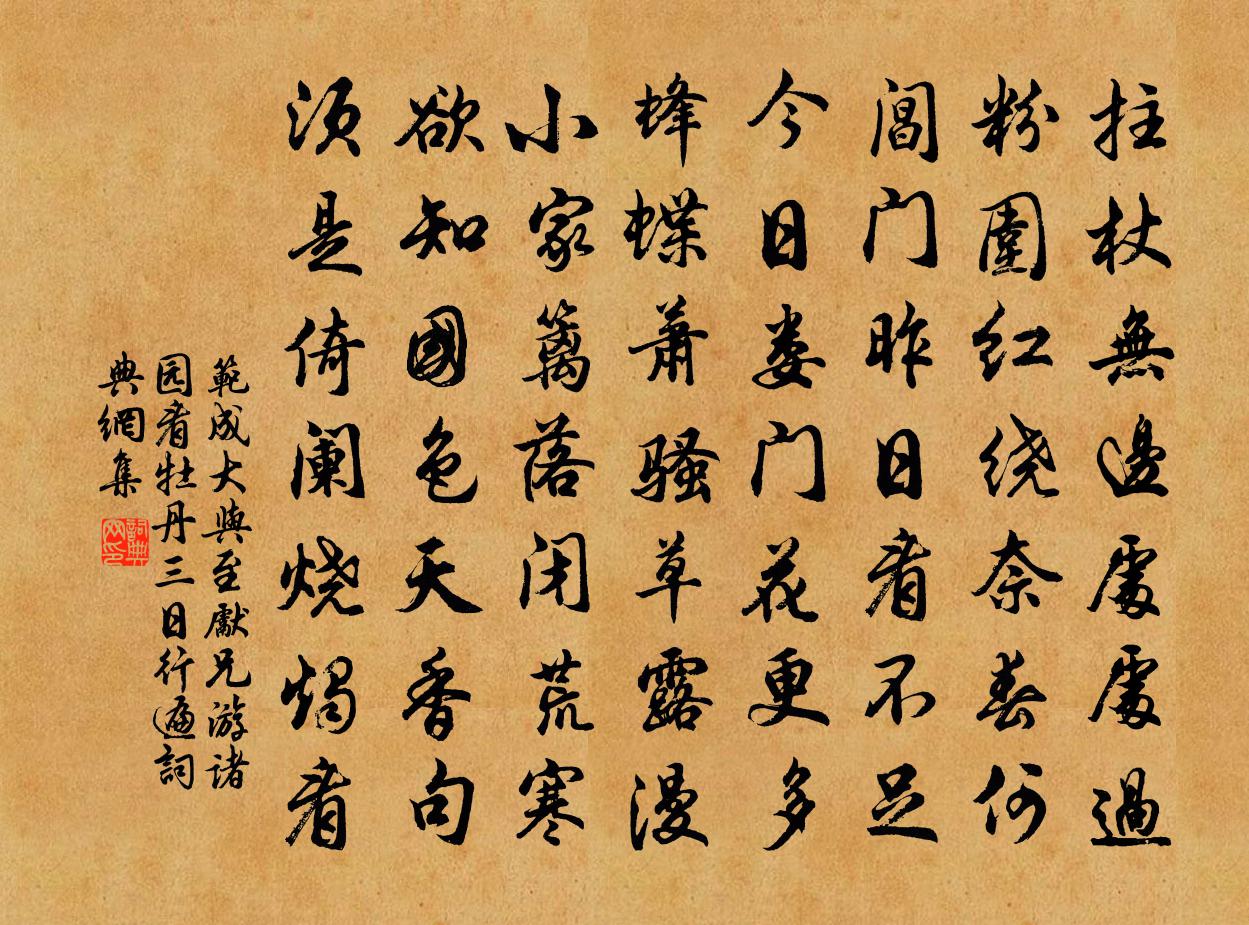 拄杖無邊處處過
粉圍红绕奈春何
閶门昨日看不足
今日娄门花更多
蜂蝶萧骚草露漫
小家篱落闭荒寒
欲知國色天香句
须是倚阑烧烛看
範成大與至獻兄游诸
园看牡丹三日行遍詞
典網集
詞典网印